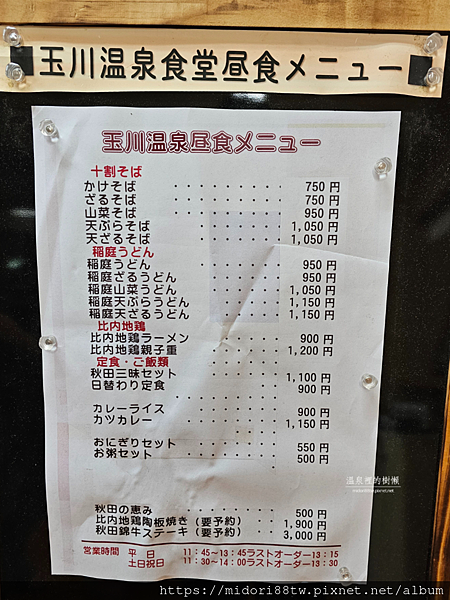 玉川温泉食堂昼食メニュー
玉川温泉昼食メニュー
十割そば
かけそば ・・・・・・・・ 750円
ざるそば ・・・・・・・・ 750円
山菜そば ・・・・・・・・ 950円
天ぷらそば ・・・・・・ 1,050円
天ざるそば ・・・・・・ 1,050円
稲庭うどん
稲庭うどん ・・・・・ 950円
稲庭ざるうどん ・・・・・ 950円
稲庭山菜うどん ・・・・・ 1,050円
稲庭天ぷらうどん ・・・・・ 1,150円
稲庭天ざるうどん ・・・・・ 1,150円
比内地鶏
比内地鶏ラーメン ・・・・ 900円
比内地鶏親子重 ・・・・・ 1,200円
定食・ご飯類
秋田三昧セット ・・・・・ 1,100円
日替わり定食 ・・・・・・ 900円
カレーライス ・・・・・・ 900円
カツカレー ・・・・・・・ 1,150円
おにぎりセット ・・・・・ 550円
お粥セット ・・・・・・・ 500円
秋田の恵み ・・・・・・・ 500円
比内地鶏陶板焼き(要予約) ・・ 1,900円
秋田錦牛ステーキ(要予約) ・・ 3,000円
営業時間 平 日 11:45~13:45ラストオーダー13:15
土日祝日 11:30~14:00ラストオーダー13:30
温泉裡的樹懶
https://midori88tw.pixnet.net/album